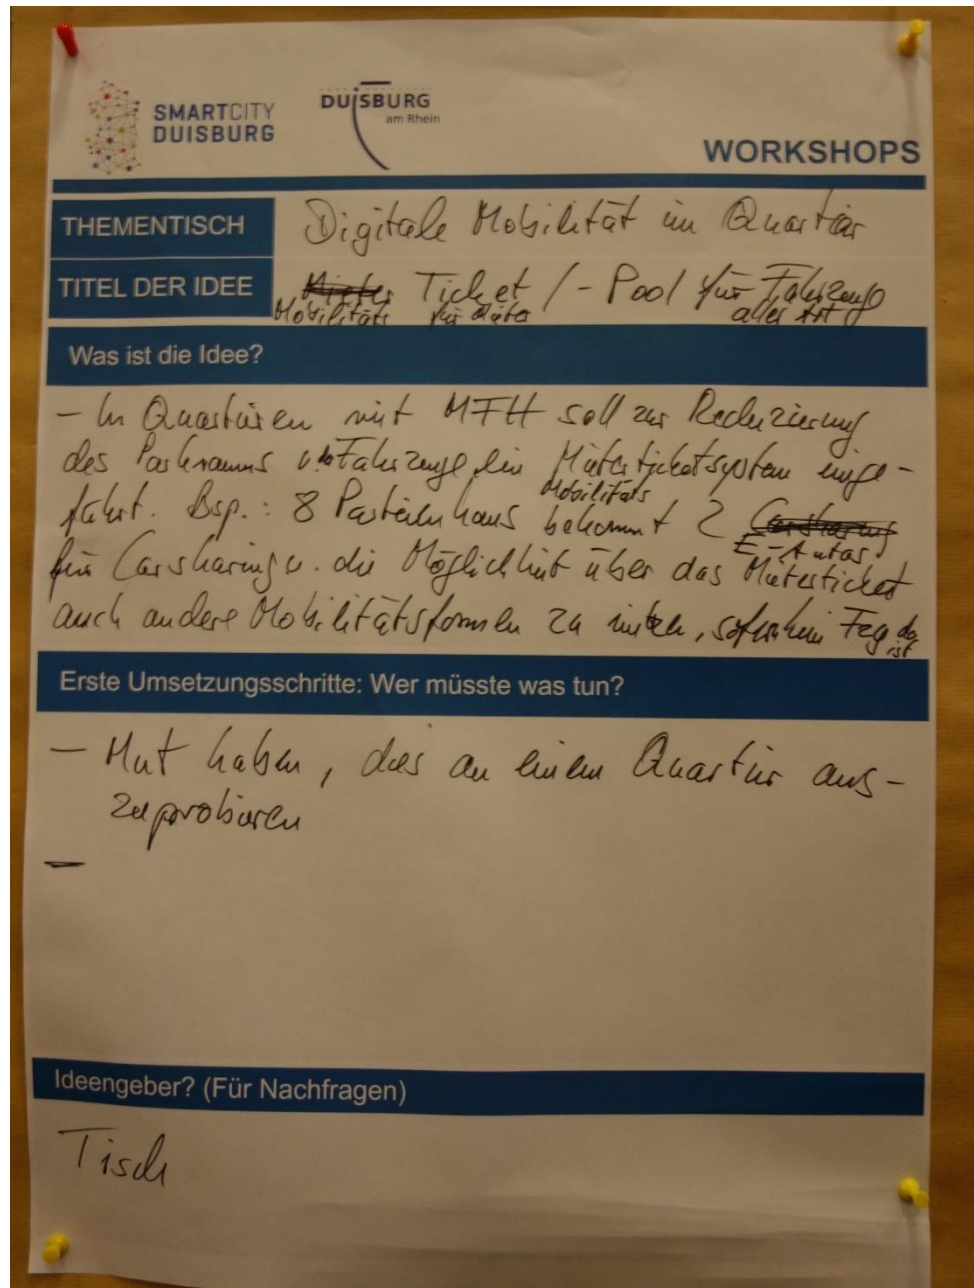 SMARTCITY
DUISBURG
DUISBURG
am Rhein
WORKSHOPS
THEMENTISCH Digitale Mobilität im Quartier
TITEL DER IDEE Mieter Ticket / - Pool für Fahrzeuge
Mobilitäts für Mieter aller Art
Was ist die Idee?
- In Quartieren mit MFH soll zur Reduzierung
des Parkraums u. Fahrzeuge ein Mieterticketsystem einge-
Mobilitäts
führt. Bsp.: 8 Parteienhaus bekommt 2 Carsharing
E-Autos
für Carsharing u. die Möglichkeit über das Mieterticket
auch andere Mobilitätsformen zu nutzen, sofern kein Fzg da
ist
Erste Umsetzungsschritte: Wer müsste was tun?
- Mut haben, dies an einem Quartier aus-
zuprobieren
-
Ideengeber? (Für Nachfragen)
Tisch